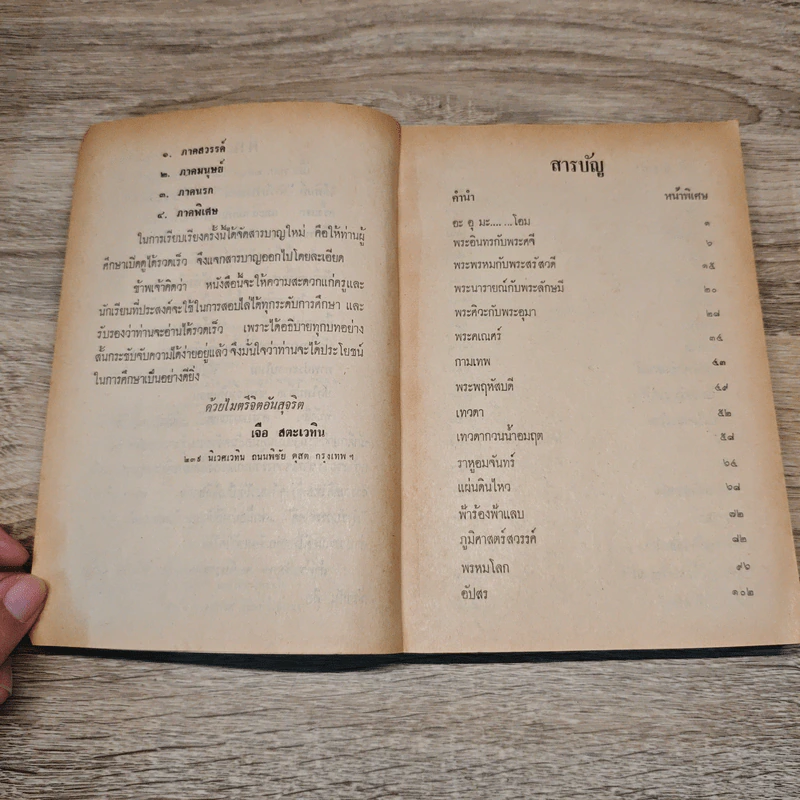 ๑. ภาคสวรรค์
๒. ภาคมนุษย์
๓. ภาคนรก
๔. ภาคพิเศษ
ในการเรียบเรียงครั้งนี้ได้จัดสารบาญใหม่ คือให้ท่านผู้
ศึกษาเปิดดูได้รวดเร็ว จึงแจกสารบาญออกไปโดยละเอียด
ข้าพเจ้าคิดว่า หนังสือนี้จะให้ความสะดวกแก่ครูและ
นักเรียนที่ประสงค์จะใช้ในการสอบไล่ได้ทุกระดับการศึกษา และ
รับรองว่าท่านจะอ่านได้รวดเร็ว เพราะได้อธิบายทุกบทอย่าง
สั้นกระชับจับความได้ง่ายอยู่แล้ว จึงมั่นใจว่าท่านจะได้ประโยชน์
ในการศึกษาเป็นอย่างดียิ่ง
ด้วยไมตรีจิตอันสุจริต
เจือ สตะเวทิน
๒๓๙ นิเวศเวทิน ถนนพิชัย ดุสิต กรุงเทพ ฯ
สารบัญ
คำนำ หน้าพิเศษ
อะ อุ มะ......โอม ๑
พระอินทรกับพระศจี ๖
พระพรหมกับพระสรัสวดี ๑๕
พระนารายณ์กับพระลักษมี ๒๐
พระศิวะกับพระอุมา ๒๘
พระคเณศร์ ๓๕
กามเทพ ๔๓
พระพฤหัสบดี ๔๙
เทวดา ๕๒
เทวดากวนน้ำอมฤต ๕๘
ราหูอมจันทร์ ๖๔
แผ่นดินไหว ๖๘
ฟ้าร้องฟ้าแลบ ๗๒
ภูมิศาสตร์สวรรค์ ๘๒
พรหมโลก ๙๖
อัปสร ๑๐๒